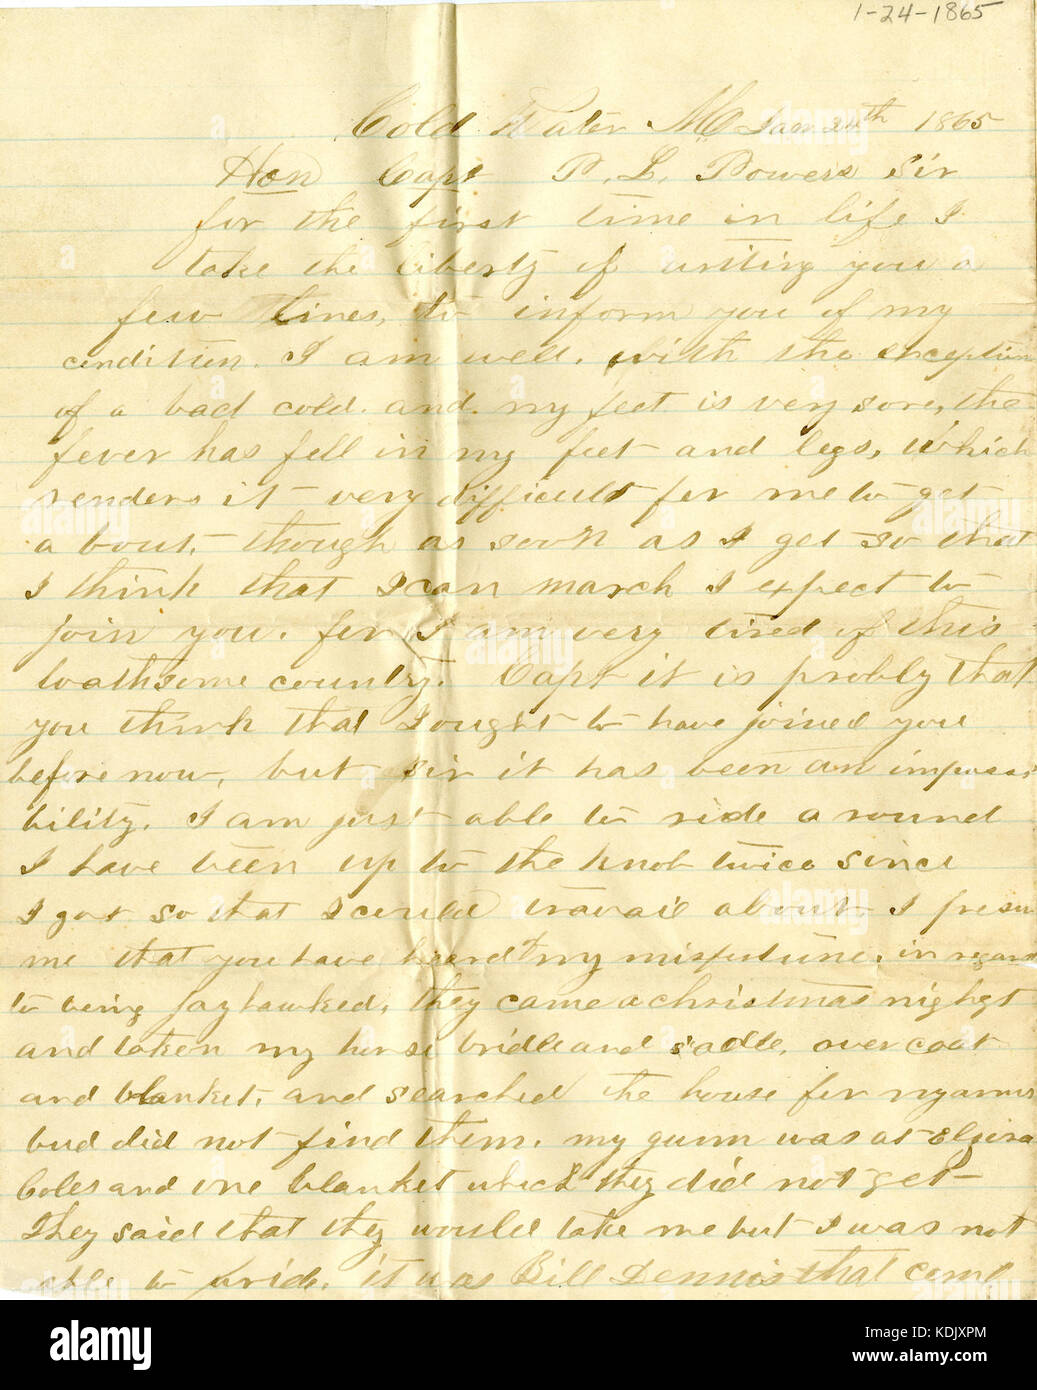 1-24-1865
Cold Water Mo Jan 24th 1865
Hon Capt P. L. Powers Sir
for the first time in life I
take the liberty of writing you a
few lines, to inform you of my
condition. I am well. with the exception
of a bad cold. and my feet is very sore, the
fever has fell in my feet and legs, which
renders it very difficult for me to get
a bout, though as soon as I get so that
I think that I can march I expect to
join you. for I am very tired of this
loathsome country. Capt it is probly that
you think that I ought to have joined you
before now, but sir it has been an impossi
bility. I am just able to ride a round
I have been up to the knob twice since
I got so that I could travail about I presu
me that you have heard my misfortune. in regard
to being jayhawked, they came a christmas night
and taken my horse bridle and sadle, over coat
and blanket, and searched the house for my arms
but did not find them. my gunn was at Elzira
Coles and one blanket which they did not get
They said that they would take me but I was not
able to ride. it was Bill Dennis that come
alamy
Image ID: KDJXPM
www.alamy.com